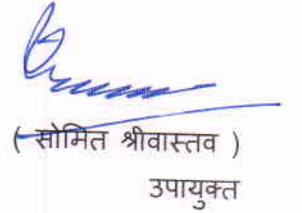 ( सोमित श्रीवास्तव )
उपायुक्त